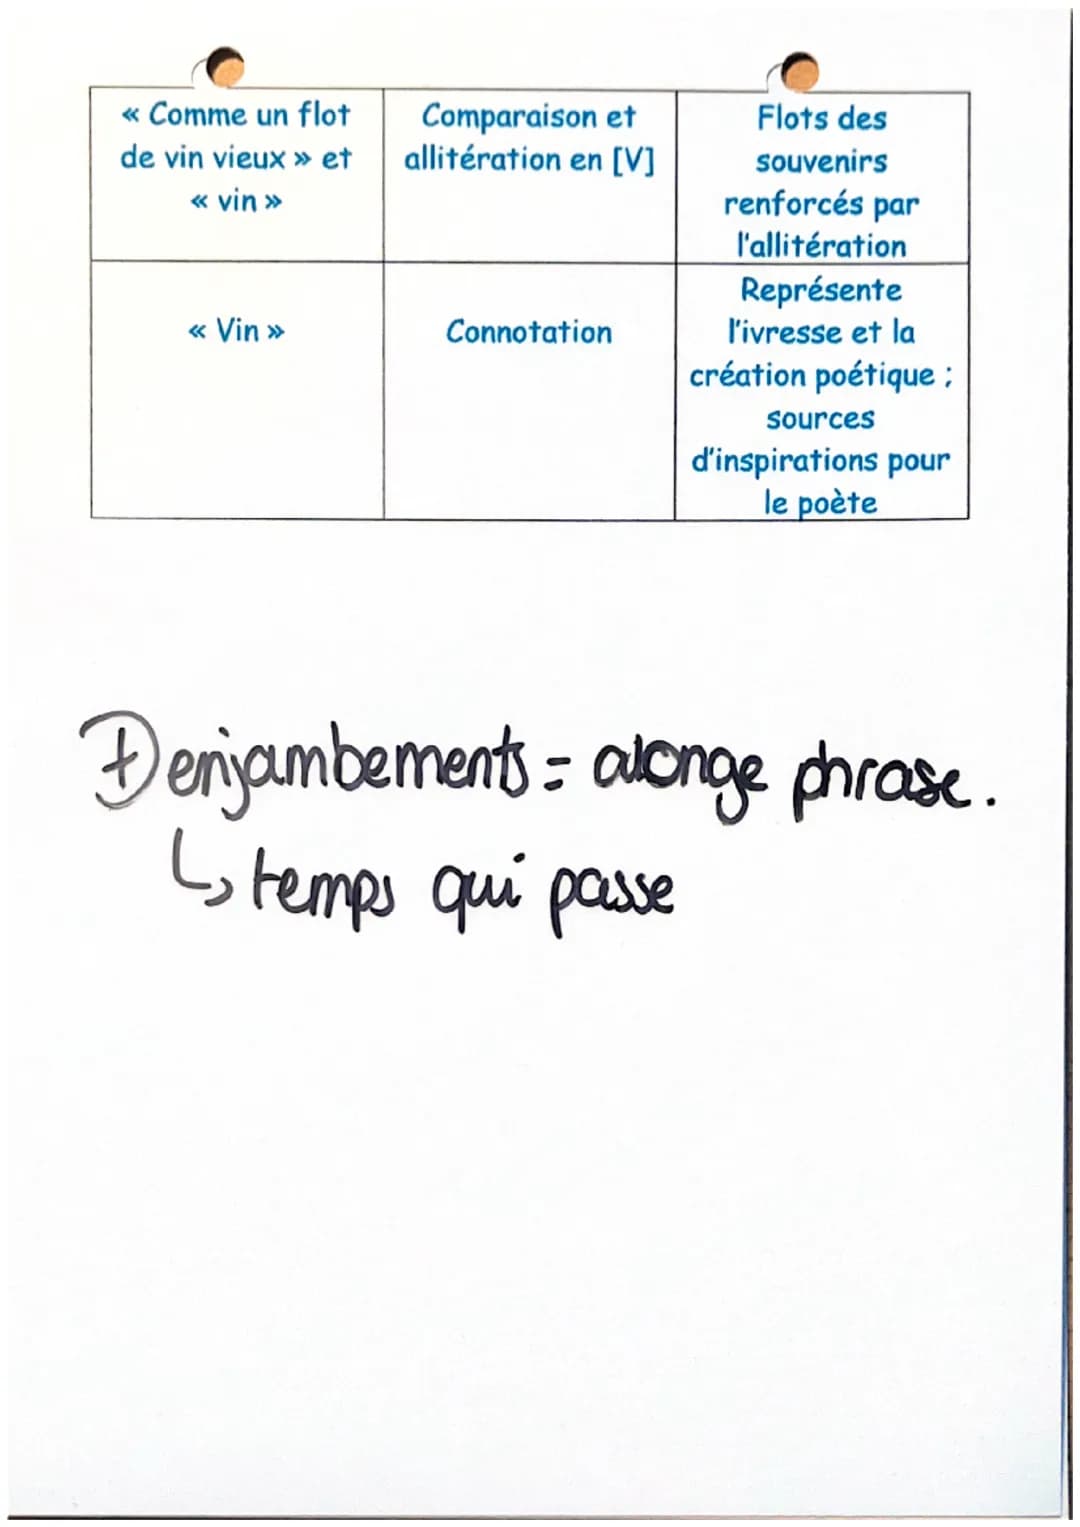 « Comme un flot
de vin vieux » et
« vin »
Comparaison et
allitération en [V]
Flots des
souvenirs
renforcés par
l'allitération
« Vin »
Connotation
Représente
l'ivresse et la
création poétique ;
sources
d'inspirations pour
le poète
+ enjambements = alonge phrase.
↳ temps qui passe